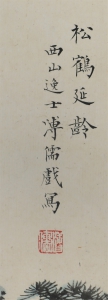 松鶴延齡
西山逸士溥儒戲寫